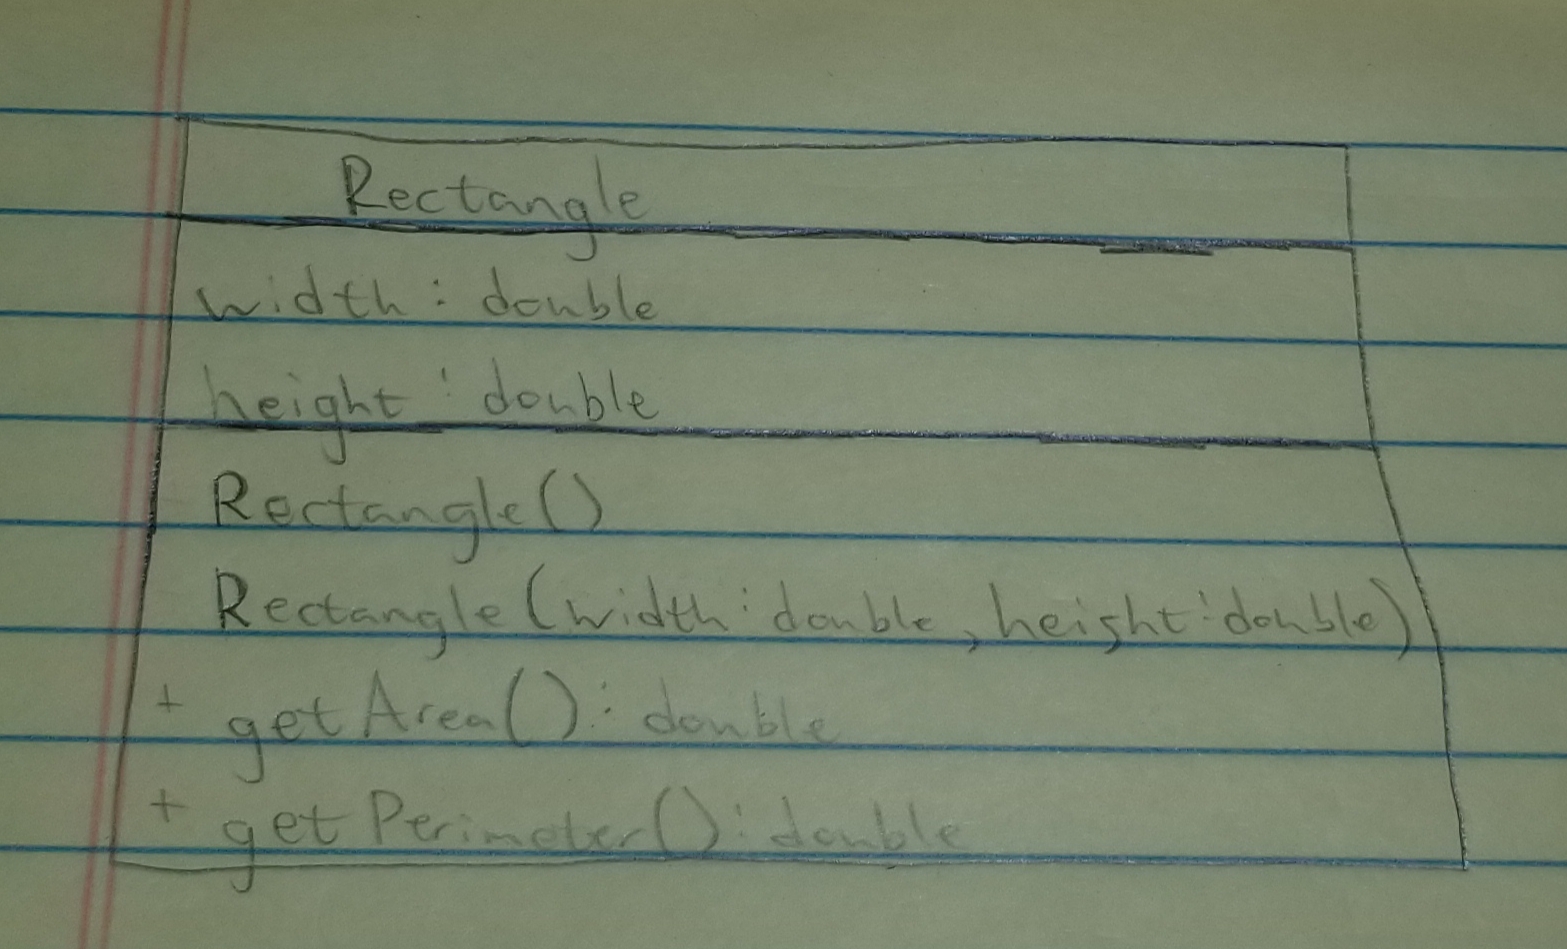 Rectangle
width : double
height : double
Rectangle()
Rectangle(width : double, height : double)
+ getArea() : double
+ getPerimeter() : double